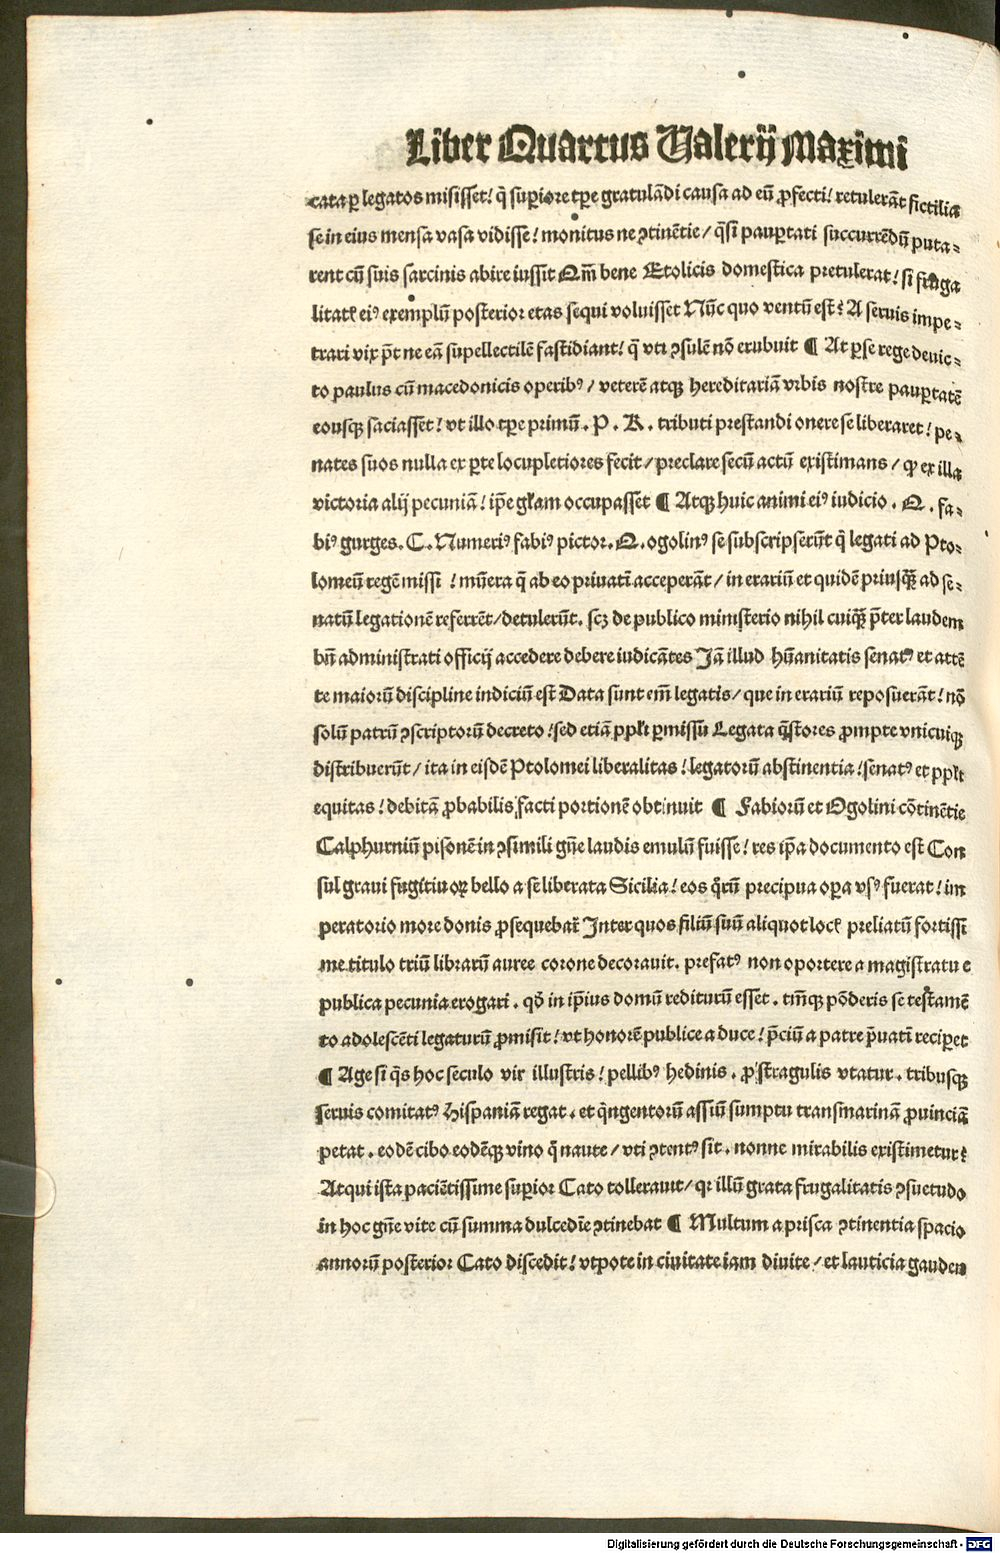 Liber Quartus Valerij Maximi
cata ꝑ legatos misisset! q̄ suꝑiore tꝑe gratulādi causa ad eū ꝓfecti! retulerāt fictilia
se in eius mensa vasa vidisse! monitus ne ꝯtinētie / q̄si pauꝑtati succurrēdū puta⸗
rent cū suis sarcinis abire iussit Qm̄ bene Etolicis domestica pretulerat! si fruga
litatꝭ eiꝰ exemplū posterior etas sequi voluisset Nūc quo ventū est? A seruis impe⸗
trari vix p̄t ne eā supellectilē fastidiant! q̄ vti ꝯsulē nō erubuit ¶ At ꝑse rege deuic⸗
to paulus cū macedonicis operibꝰ / veterē atqꝫ hereditariā vrbis nostre pauꝑtatē
eousqꝫ saciasset! vt illo tꝑe primū. P. R. tributi prestandi onere se liberaret! pe⸗
nates suos nulla ex ꝑte locupletiores fecit / preclare secū actū existimans / ꝙ ex illa
victoria alij pecuniā! ip̄e gl̄am occupasset ¶ Atqꝫ huic animi eiꝰ iudicio. Q. fa⸗
biꝰ gurges. C. Numeriꝰ fabiꝰ pictor. Q. ogolinꝰ se subscripserūt q̄ legati ad Pto⸗
lomeū regē missi ! mūera q̄ ab eo priuatī acceperāt / in erariū et quidē priusq̄ꝫ ad se⸗
natū legationē referrēt / detulerūt. scꝫ de publico ministerio nihil cuiq̄ꝫ p̄ter laudem
bn̄ administrati officij accedere debere iudicātes Jā illud hūanitatis senatꝰ et attē
te maiorū discipline indiciū est Data sunt em̄ legatis / que in erariū reposuerāt! nō
solū patrū ꝯscriptorū decreto! sed etiā ppl̄i ꝑmissu Legata q̄stores ꝓmpte vnicuiqꝫ
distribuerūt / ita in eisdē Ptolomei liberalitas! legatorū abstinentia! senatꝰ et ppl̄i
equitas! debitā ꝓbabilis facti portionē obtinuit ¶ Fabiorū et Ogolini cōtinētie
Calphurniū pisonē in ꝯsimili gn̄e laudis emulū fuisse! res ip̄a documento est Con
sul graui fugitiuoꝝ bello a se liberata Sicilia! eos q̄rū precipua oꝑa vsꝰ fuerat! im
peratorio more donis ꝓsequebat̄ Inter quos filiū suū aliquot locꝭ preliatū fortissi
me titulo triū librarū auree corone decorauit. prefatꝰ non oportere a magistratu e
publica pecunia erogari. qō in ip̄ius domū rediturū esset. tm̄qꝫ pōderis se testamē
to adolescēti legaturū ꝓmisit! vt honorē publice a duce! p̄ciū a patre p̄uatī reciꝑet
¶ Age si q̄s hoc seculo vir illustris! pellibꝰ hedinis. ꝓ stragulis vtatur. tribusqꝫ
seruis comitatꝰ hispaniā regat. et q̄ngentorū assiū sumptu transmarinā ꝓuinciā
petat. eodē cibo eodēqꝫ vino q̄ naute / vti ꝯtentꝰ sit. nonne mirabilis existimetur?
Atqui ista paciētissime suꝑior Cato tollerauit / qꝛ illū grata frugalitatis ꝯsuetudo
in hoc gn̄e vite cū summa dulcedīe ꝯtinebat ¶ Multum a prisca ꝯtinentia spacio
annorū posterior Cato discedit! vtpote in ciuitate iam diuite / et lauticia gauden
Digitalisierung gefördert durch die Deutsche Forschungsgemeinschaft - DFG